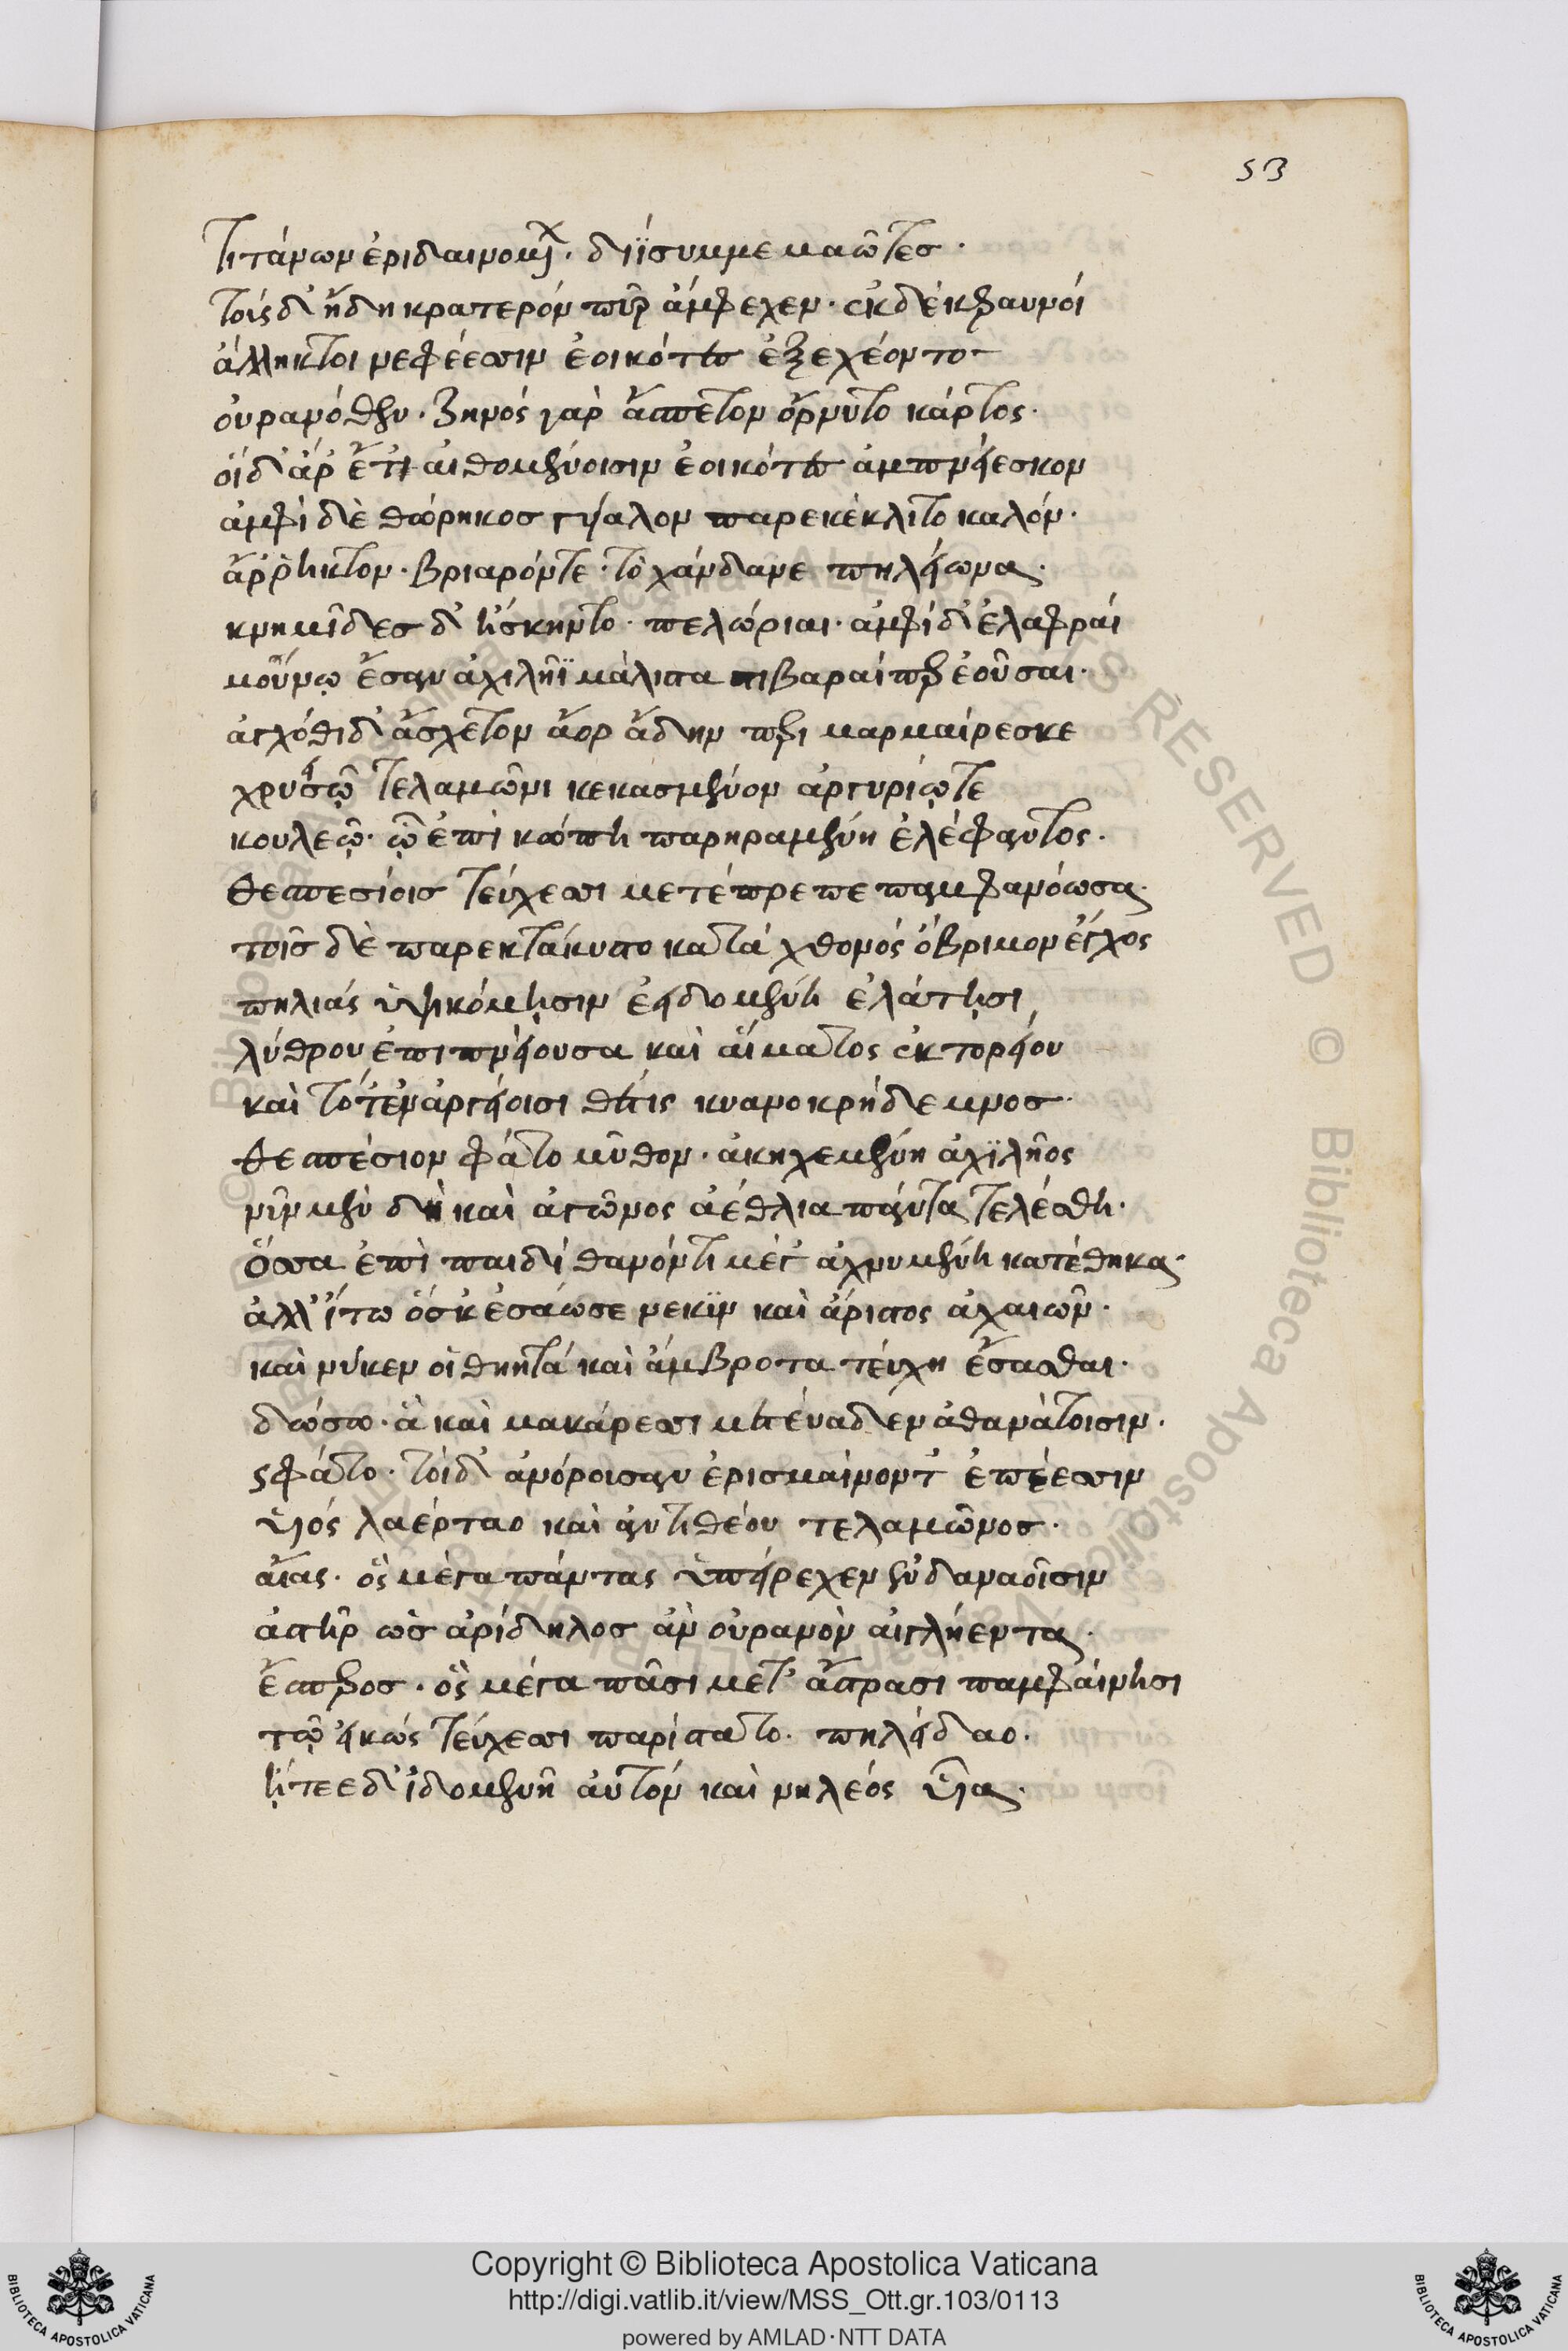 53
τιτάνων ἐριδαινομχ. διῒ συμμεμαῶτες·
τοῖς δ' ἤδη κρατερὸν πῦρ ἄμφεχεν· ἐκ δὲ κεραυνοὶ
ἄλληκτοι νεφέεσσιν ἐοικότες ἐξεχέοντο
οὐρανόθεν· ζηνὸς γὰρ ἄσπετον ὄρνυτο κάρτος·
οἱ δ' ἄρ' ἔτι αἰθομένοισιν ἐοικότες ἀμπνείεσκον
ἀμφὶ δὲ θώρηκος γύαλον παρεκέκλιτο καλόν·
ἄῤῥηκτον· βριαρόν τε· τὸ χάνδανε πηλείωνα·
κνημῖδες δ' ἤσκηντο· πελώριαι· ἀμφὶ δ' ἐλαφραὶ
μούνῳ ἔσαν ἀχιλῆϊ μάλιστα στιβαραί περ ἐοῦσαι·
ἀγχόθι δ' ἄσχετον ἄορ ἄδην περι μαρμαίρεσκε
χρυσείῳ τελαμῶνι κεκασμένον ἀργυρίῳ τε
κουλεῷ· ᾧ ἐπὶ κώπη παρηραμένη ἐλέφαντος·
θεσπεσίοις τεύχεσσι μετέπρεπε παμφανόωσα·
τοῖς δὲ παρεκτάνυστο κατὰ χθονὸς ὄβριμον ἔγχος
πηλιὰς ὑψικόμῃσιν ἐειδομένη ἐλάτῃσι
λύθρου ἐπιπνείουσα καὶ αἵματος ἑκτορείου
καὶ τότ' ἐν ἀργείοισι θέτις κυανοκρήδεμνος
θεσπέσιον φάτο μῦθον· ἀκηχεμένη ἀχϊλῆος
νῦν μὲν δὴ καὶ ἀγῶνος ἀέθλια πάντα τελέσθη·
ὅσσα ἐπὶ παιδὶ θανόντι μέγ' ἀχνυμένη κατέθηκα·
ἀλλ' ἴτω ὅς κ' ἐσάωσε νεκὺν καὶ ἄριστος ἀχαιῶν·
καὶ νύ κέν οἱ θηητὰ καὶ ἄμβροτα τεύχη ἕσασθαι·
δώσω· ἃ καὶ μακάρεσσι μέγ' εὔαδεν ἀθανάτοισιν·
ς φάτο· τοὶ δ' ἀνόροισαν ἐρισμαίνοντ' ἐπέεσσιν
υἱὸς λαέρταο καὶ ἀντιθέου τελαμῶνος·
αἴας· ὃς μέγα πάντας ὑπείρεχεν ἐν δαναοῖσιν
ἀστὴρ ὣς ἀρίδηλος ἀν οὐρανὸν αἰγλήεντα·
ἕσπερος· ὃς μέγα πᾶσι μετ' ἄστρασι παμφαίνησι
τῷ εἰκὼς τεύχεσσι παρίστατο· πηλείδαο·
ᾔτεε δ' ἰδομενῆ αὐτὸν καὶ νηλέος υἷα·
Copyright © Biblioteca Apostolica Vaticana
http://digi.vatlib.it/view/MSS_Ott.gr.103/0113
powered by AMLAD·NTT DATA